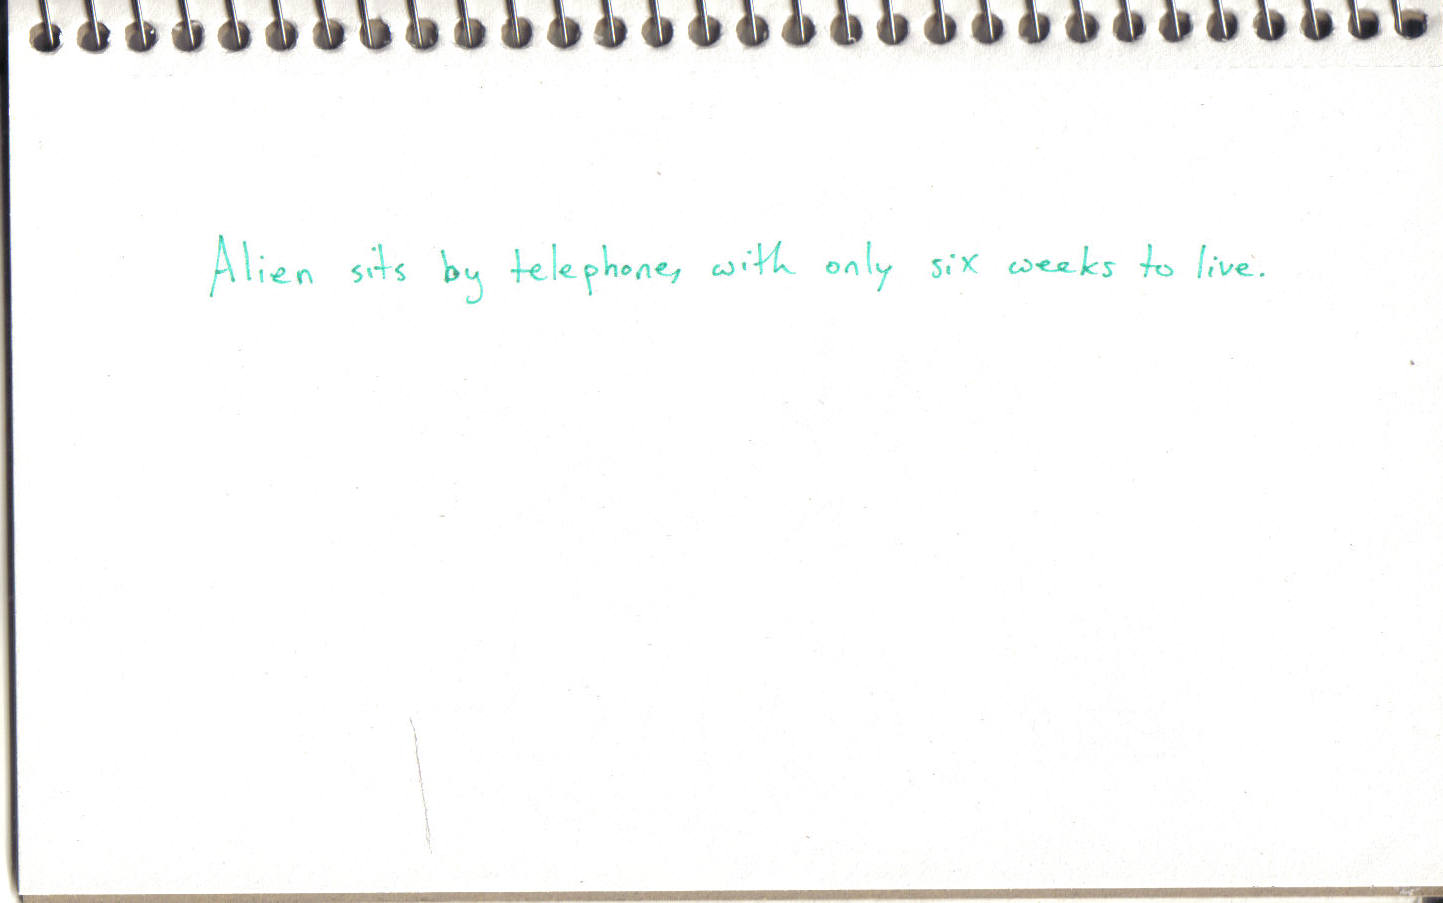 Alien sits by telephone, with only six weeks to live.